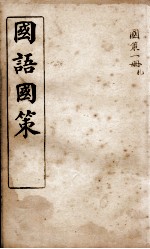 國語國策
國策一册